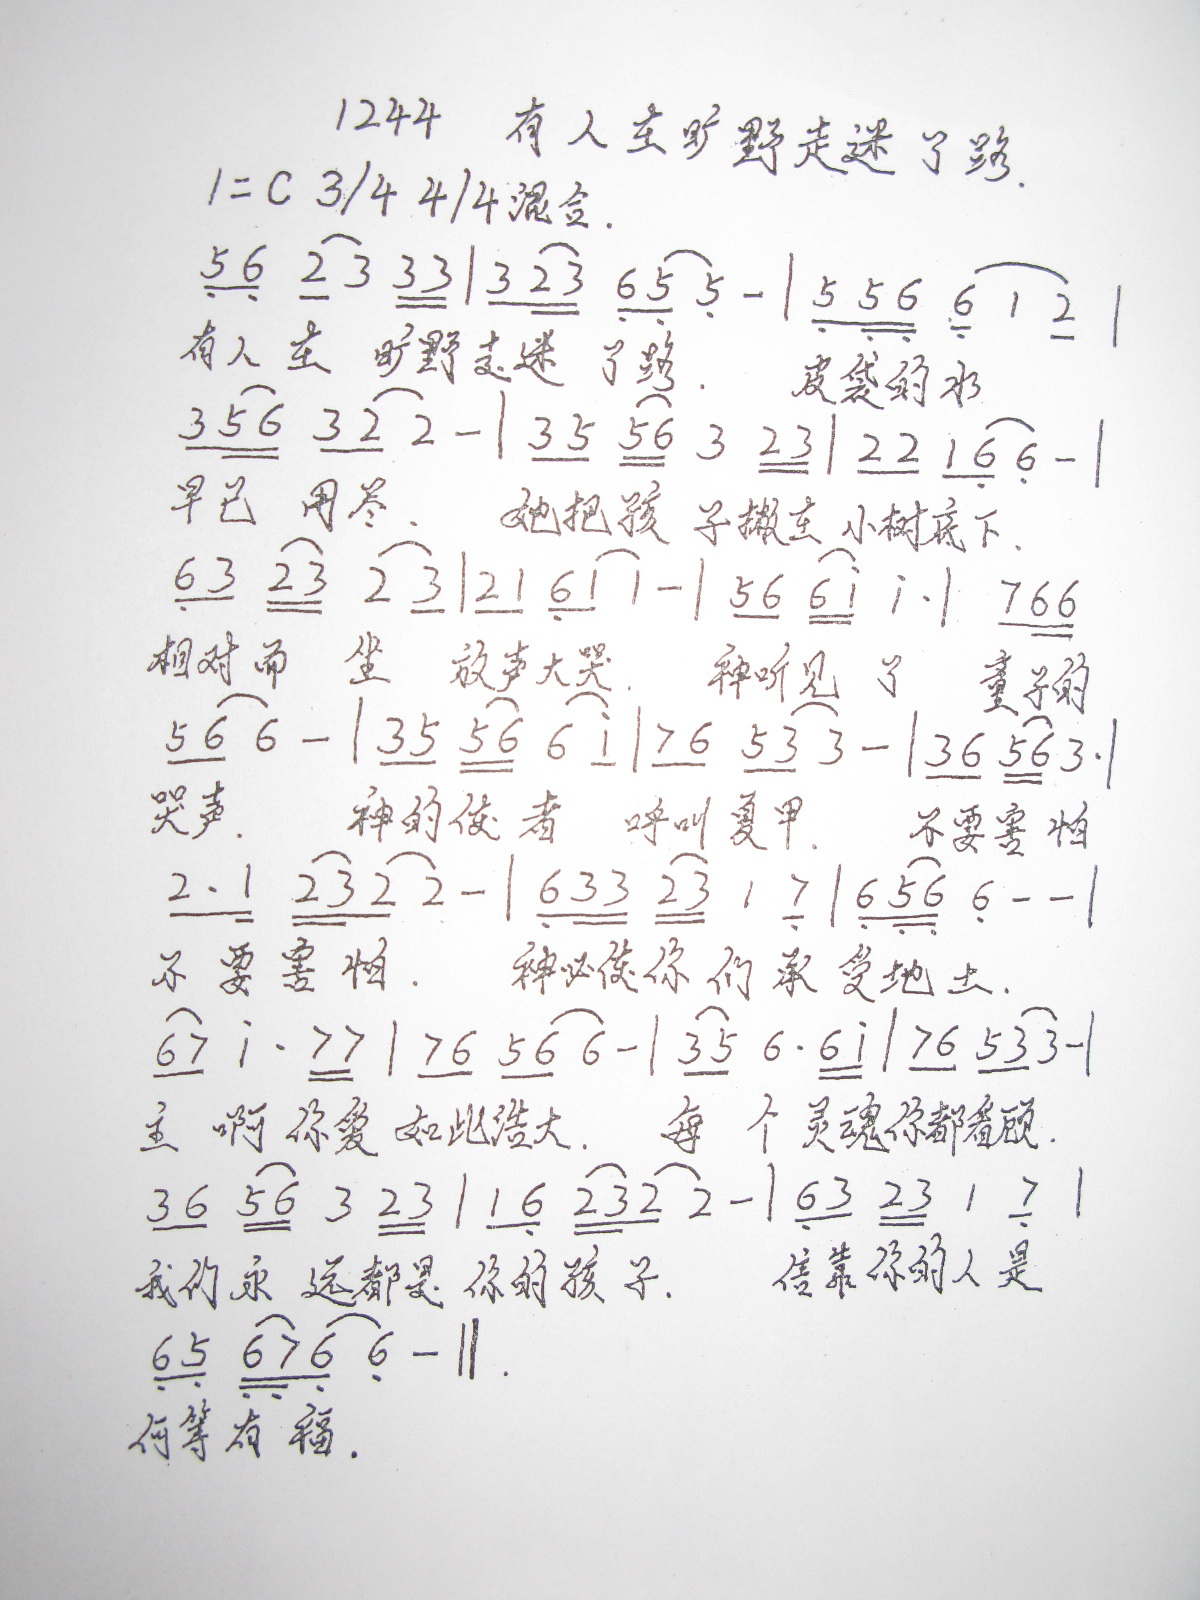 1244 有人在旷野走迷了路.
1=C 3/4 4/4混合.
56 23 33|3 23 65 5 -|5 56 6 1 2|
有人在 旷野走迷 了路. 皮袋的水
356 32 2 -|35 56 3 23|22 16 6 -|
早已 用尽. 她把孩 子撇在 小树底下.
63 23 2 3|21 61 1 -|56 6i i·| 766
相对而 坐 放声大哭. 神听见 了 童子的
56 6 -|35 56 6 i|76 53 3 -|36 56 3·|
哭声. 神的使 者 呼叫夏甲. 不要害 怕
2·1 232 2 -|633 23 1 7|656 6 - -|
不 要害 怕. 神必使你 们 承 受地 土.
67 i· 77|76 56 6 -|35 6· 6i|76 53 3-|
主 啊 你爱 如此浩大. 每 个 灵魂你都看顾.
36 56 3 23|16 232 2 -|63 23 1 7|
我们永 远都是 你的孩 子. 信靠你的人是
65 676 6 -‖.
何等有 福.